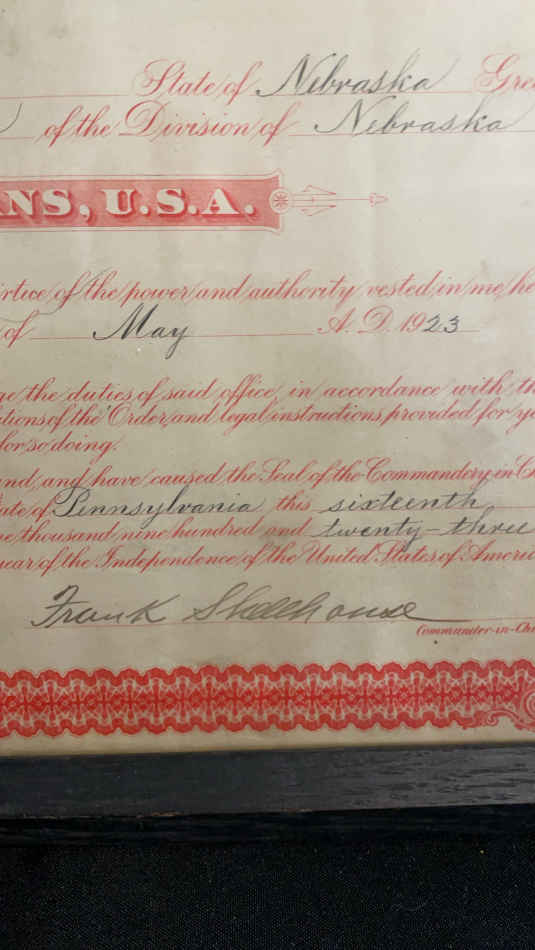 State of Nebraska Gree
of the Division of Nebraska
NS, U.S.A.
irtue of the power and authority vested in me he
of May A. D. 1923
ge the duties of said office, in accordance with th
tions of the Order, and legal instructions provided for yo
for so doing.
and, and have caused the Seal of the Commandery-in-Ch
tate of Pennsylvania this sixteenth
ne thousand nine hundred and twenty-three
year of the Independence of the United States of America
Frank Shellhouse
Commander-in-Chi